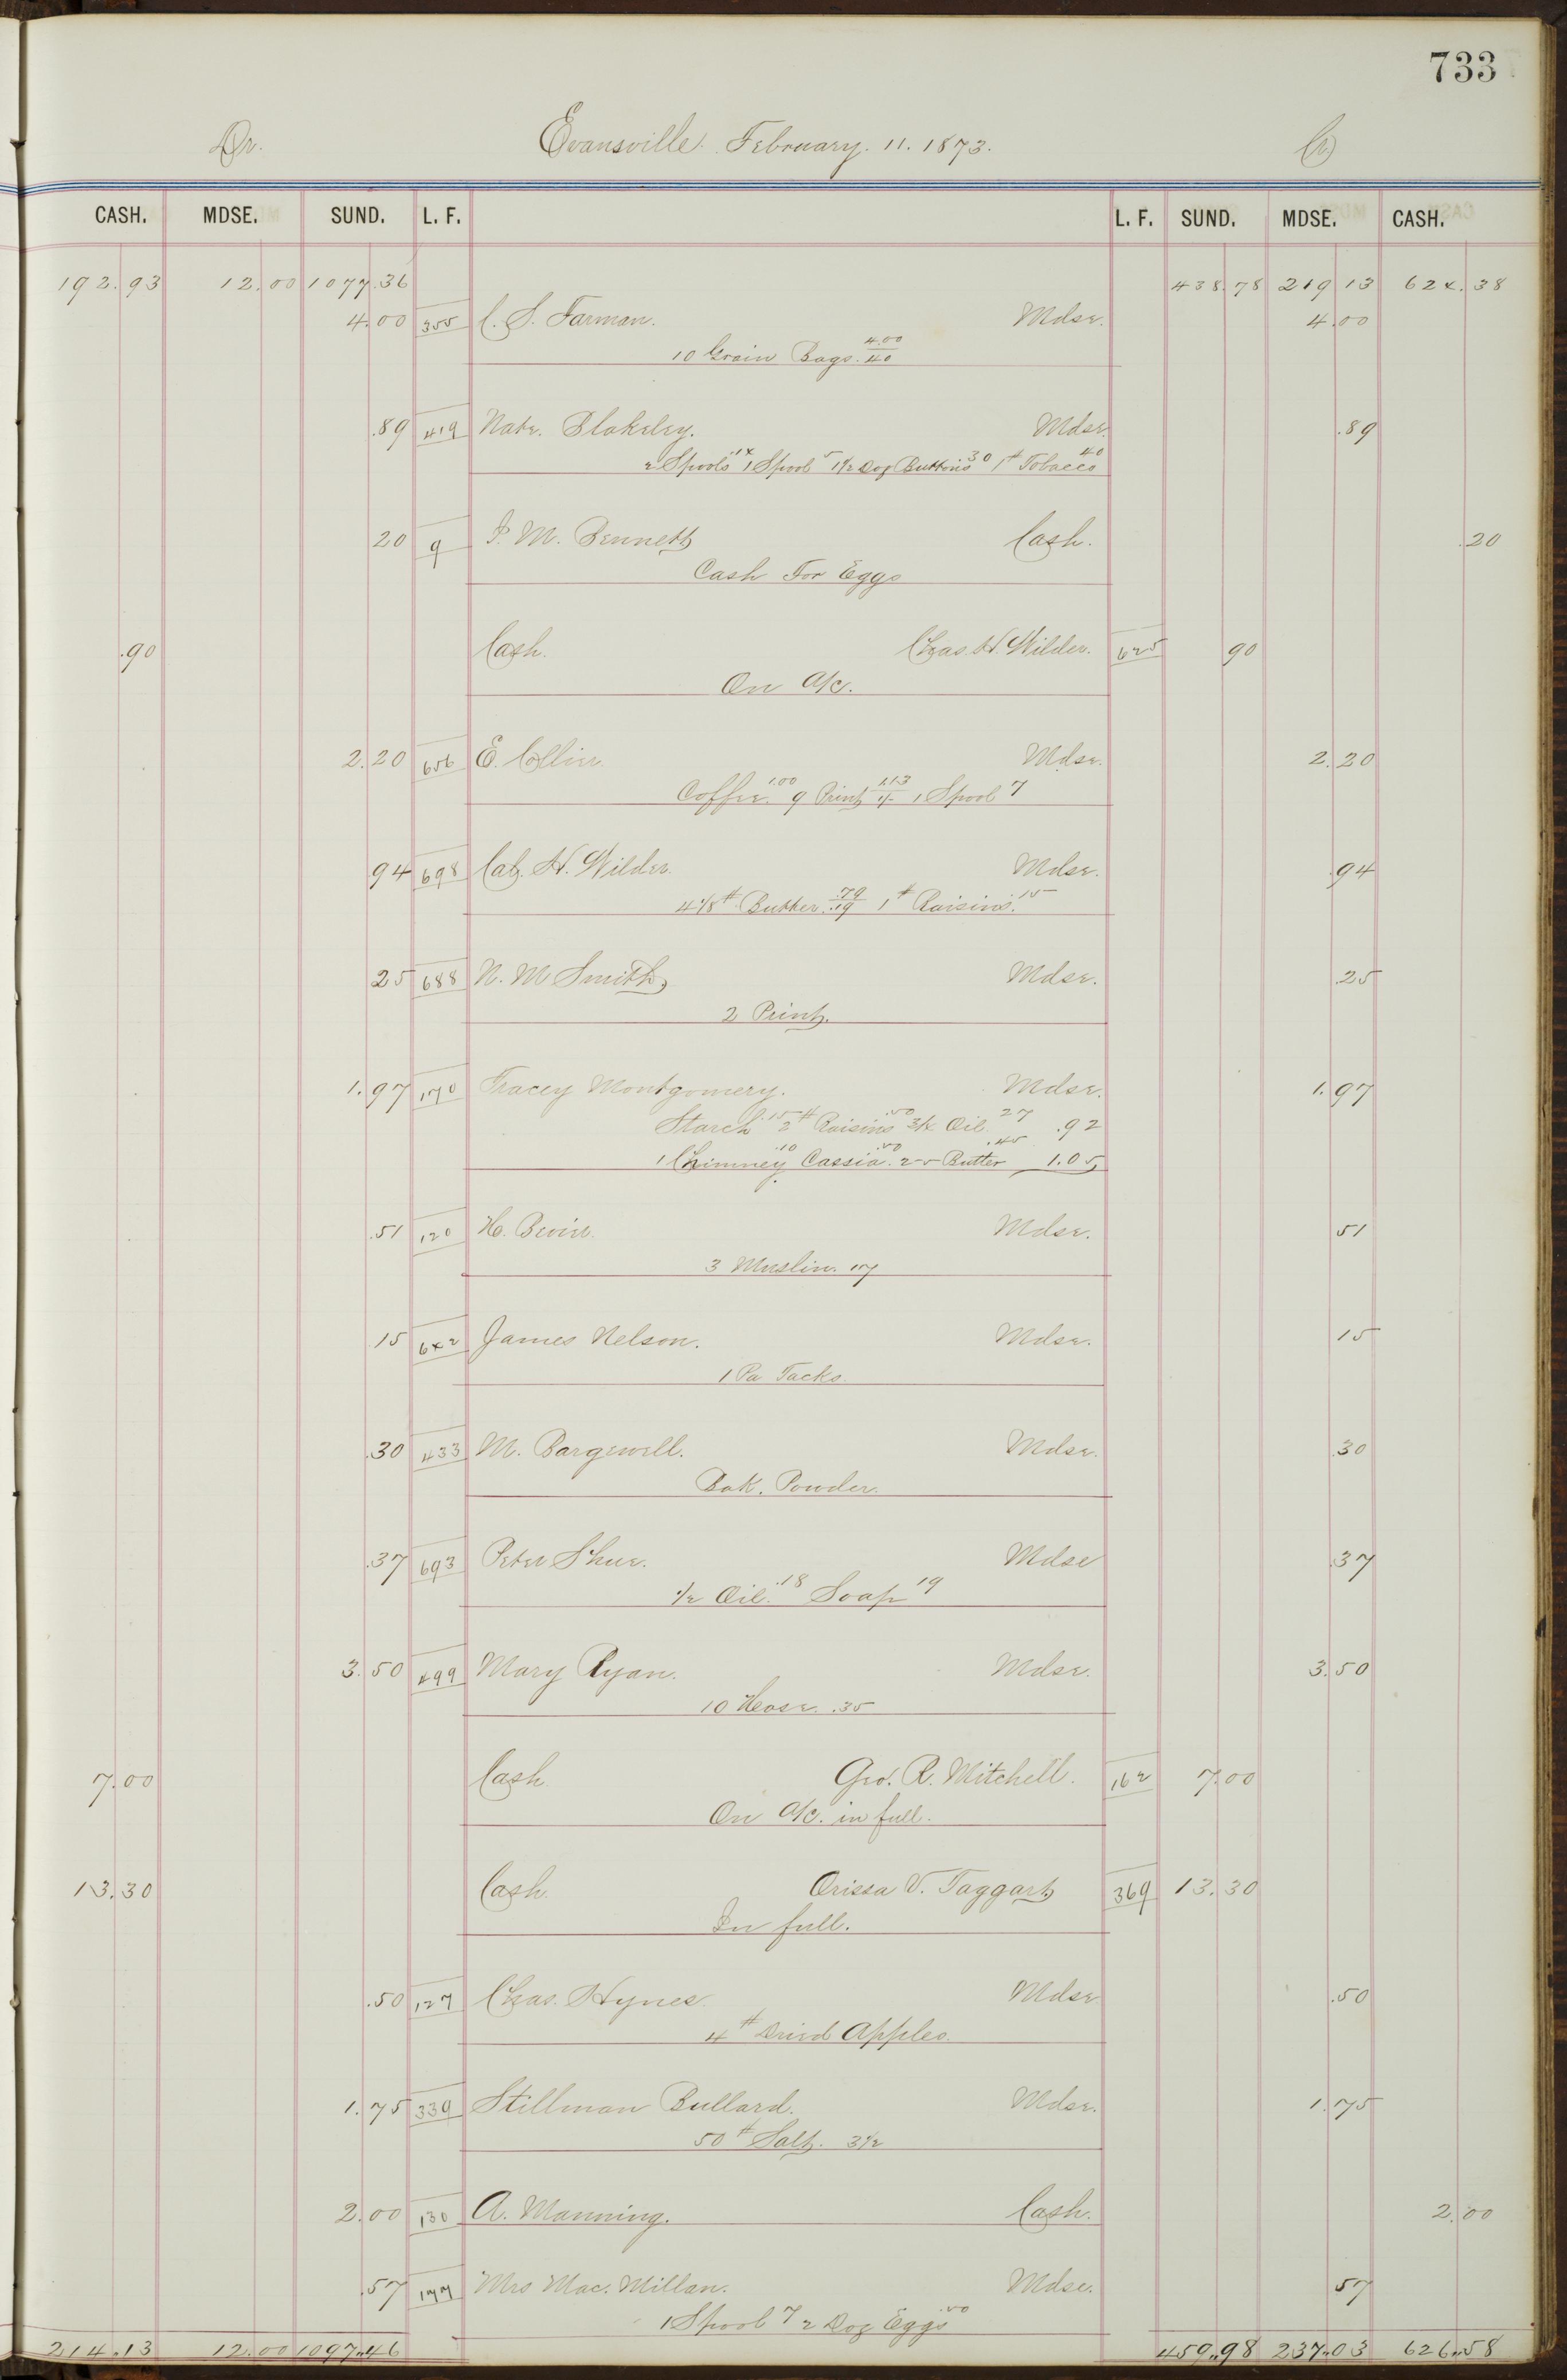 733
Dr. Evansville. February. 11. 1873. Cr
CASH. MDSE. SUND. L. F. L. F. SUND. MDSE. CASH.
192.93 12.00 1077.36 438.78 219 13 624.38
4.00 355 C. S. Farman. Mdse. 4.00
10 Grain Bags. 4.00/40
.89 419 Nate. Blakeley. Mdse. .89
2 Spools .14 1 Spool 5 1 1/2 Doz Buttons 30 1# Tobacco 40
20 9 I. M. Bennett Cash. .20
Cash For Eggs
.90 Cash. Chas. H. Wilder. 625 90
On a/c.
2.20 656 E. Mdse. 2.20
Coffee. 1.00 9 Print 1.13/1/- 1 Spool 7
94 698 Cal. H. Wilder. Mdse. .94
4 1/8# Butter. .79/.19 1# Raisins. .15
25 688 N. M Smith, Mdse. .25
2 Print.
1.97 170 Tracey Montgomery. Mdse. 1.97
Starch .15 2# Raisins .50 3/4 Oil 27 .92
1 Chimney .10 Cassia. .50 25 Butter .45 1.05
.51 120 H. Mdse. 51
3 Muslin. 17
15 642 James Nelson. Mdse. 15
1 Pa Tacks.
.30 433 M. Bargewell. Mdse. .30
Bak. Powder.
.37 693 Peter Shue. Mdse .37
1/2 Oil. .18 Soap 19
3.50 499 Mary Ryan. Mdse. 3.50
10 Hose. .35
7.00 Cash Geo. R. Mitchell. 162 7.00
On a/c. in full.
13.30 Cash. Orissa V. Taggart 369 13.30
In full.
.50 127 Chas. Hynes. Mdse. .50
4# Dried Apples.
1.75 339 Stillman Bullard. Mdse. 1.75
50# Salt. 3 1/2
2.00 130 A. Manning. Cash. 2.00
.57 177 Mrs Mac. Millan. Mdse. 57
1 Spool 7 2 Doz Eggs .50
214.13 12.00 1097.46 459.98 237.03 626.58